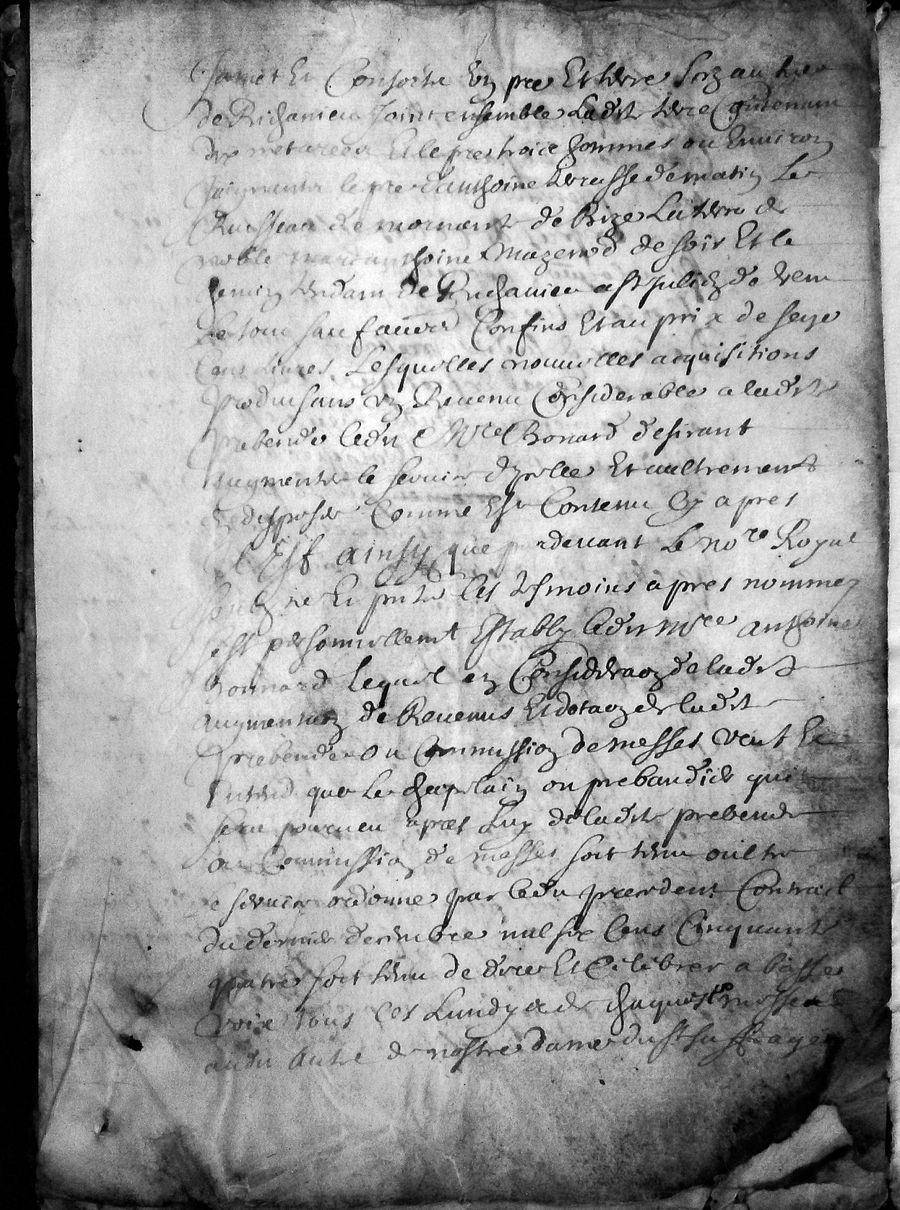 Jamet Et Consorts Un pre Et terre sizes au lieu
de Richanieu Joint ensemble Ladite terre Contenant
dix meterees Et le pre trois hommes ou Environ
Joignants le pre d'anthoine de matin Le
Ruisseau de mornant de Bize La terre de
noble marcanthoine Mazenod de soir Et le
chemin tendant de Richanieu a St Jullien de vent
Le tout sauf autres Confins Et au prix de seze
Cens Livres, Lesquelles nouvelles acquisitions
produisans un Revenu Considerable a ladite
prebende ledit Mre Chonard desirant
augmenter le service dycelle Et aultrement
disposer Comme Est Contenu Cy apres
Est ainsy que par devant Le nore Royal
Et pnts les tesmoins apres nommez
Est personnellemt Estably ledit Mre anthoine
Lequel en Consideraon de ladite
augmentaon de Revenus Et dotaon de ladite
prebende ou Commission de messes veut Et
Entend que Le chaplain ou prebandier qui
sera pourveu apres Luy de ladite prebende
ou Commission de messes soit tenu oultre
le service ordonne par ledit precedent Contrail
du dernier decembre mil six Cens Cinquante
quatre soit tenu de dire Et Celebrer a basse
voix tous les Lundys de chaque sepmaine
audit autel de nostre dame du St suffrage